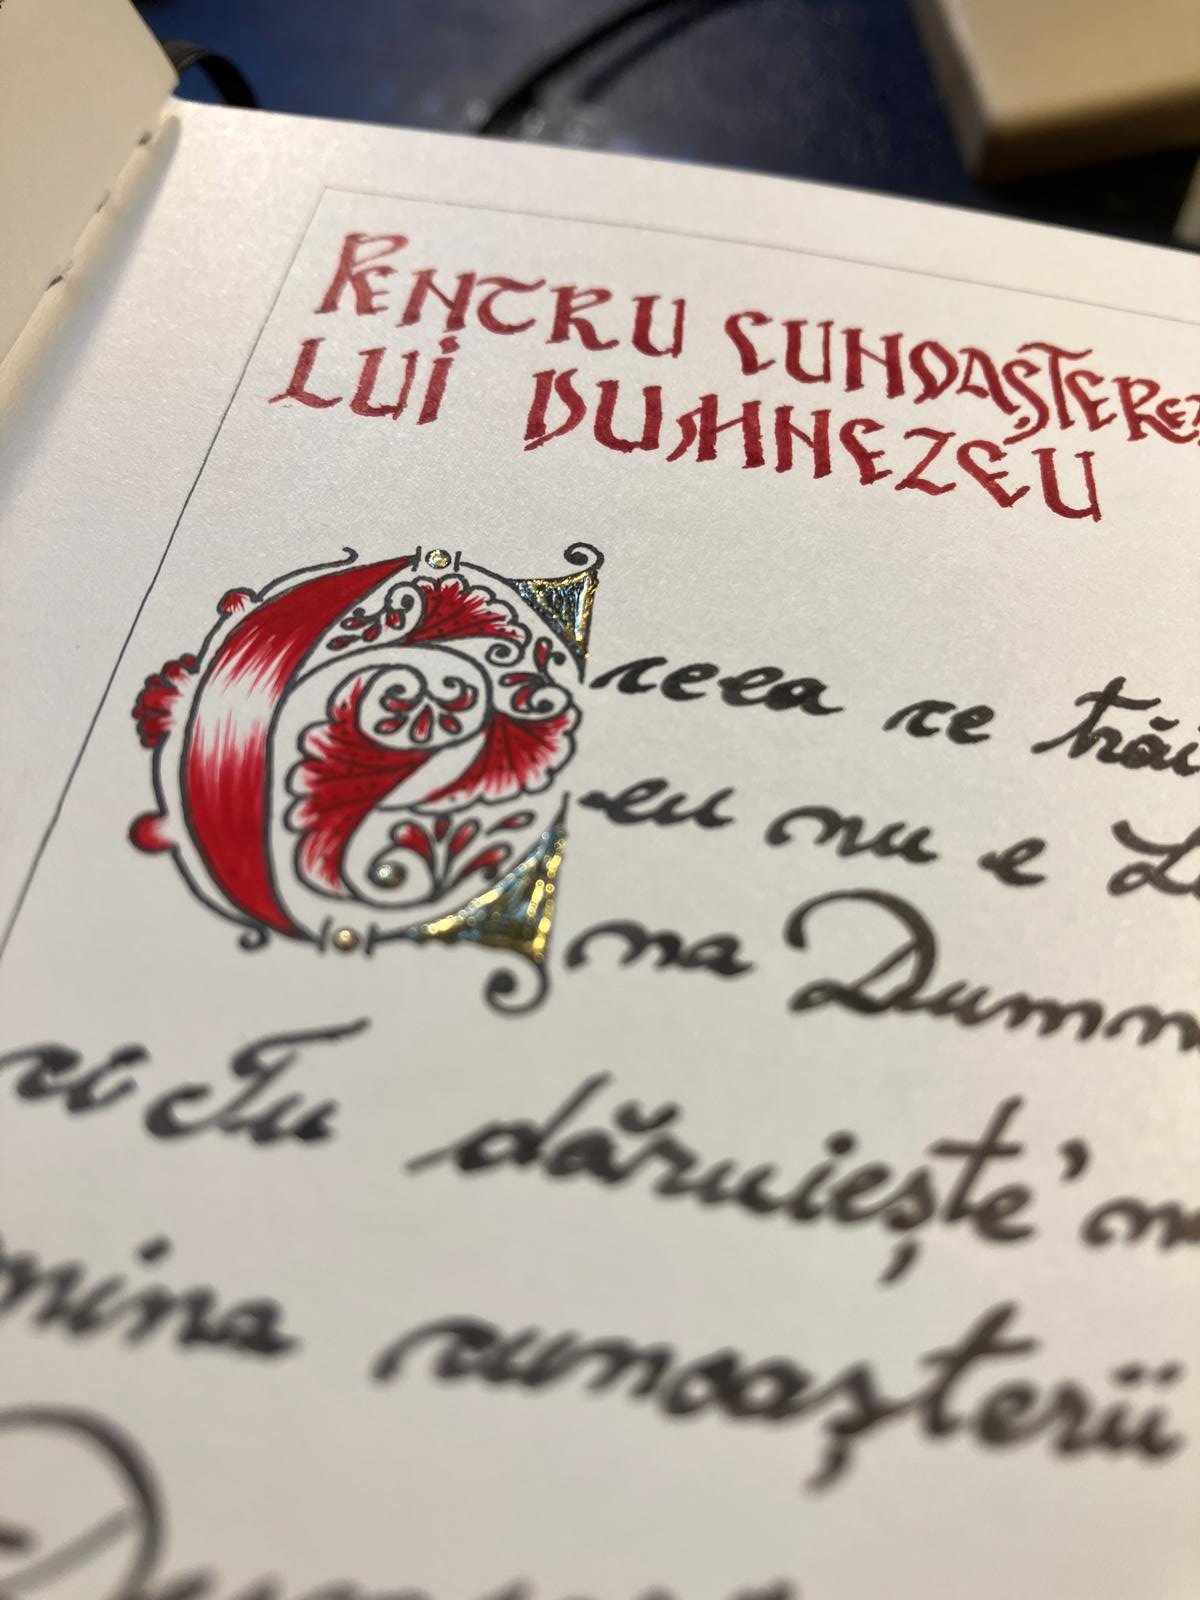 PENTRU CUNOAȘTEREA
LUI DUMNEZEU
Ceea ce trăi
eu nu e L
na Dumn
ci Tu dăruiește' ne
mina cunoașterii